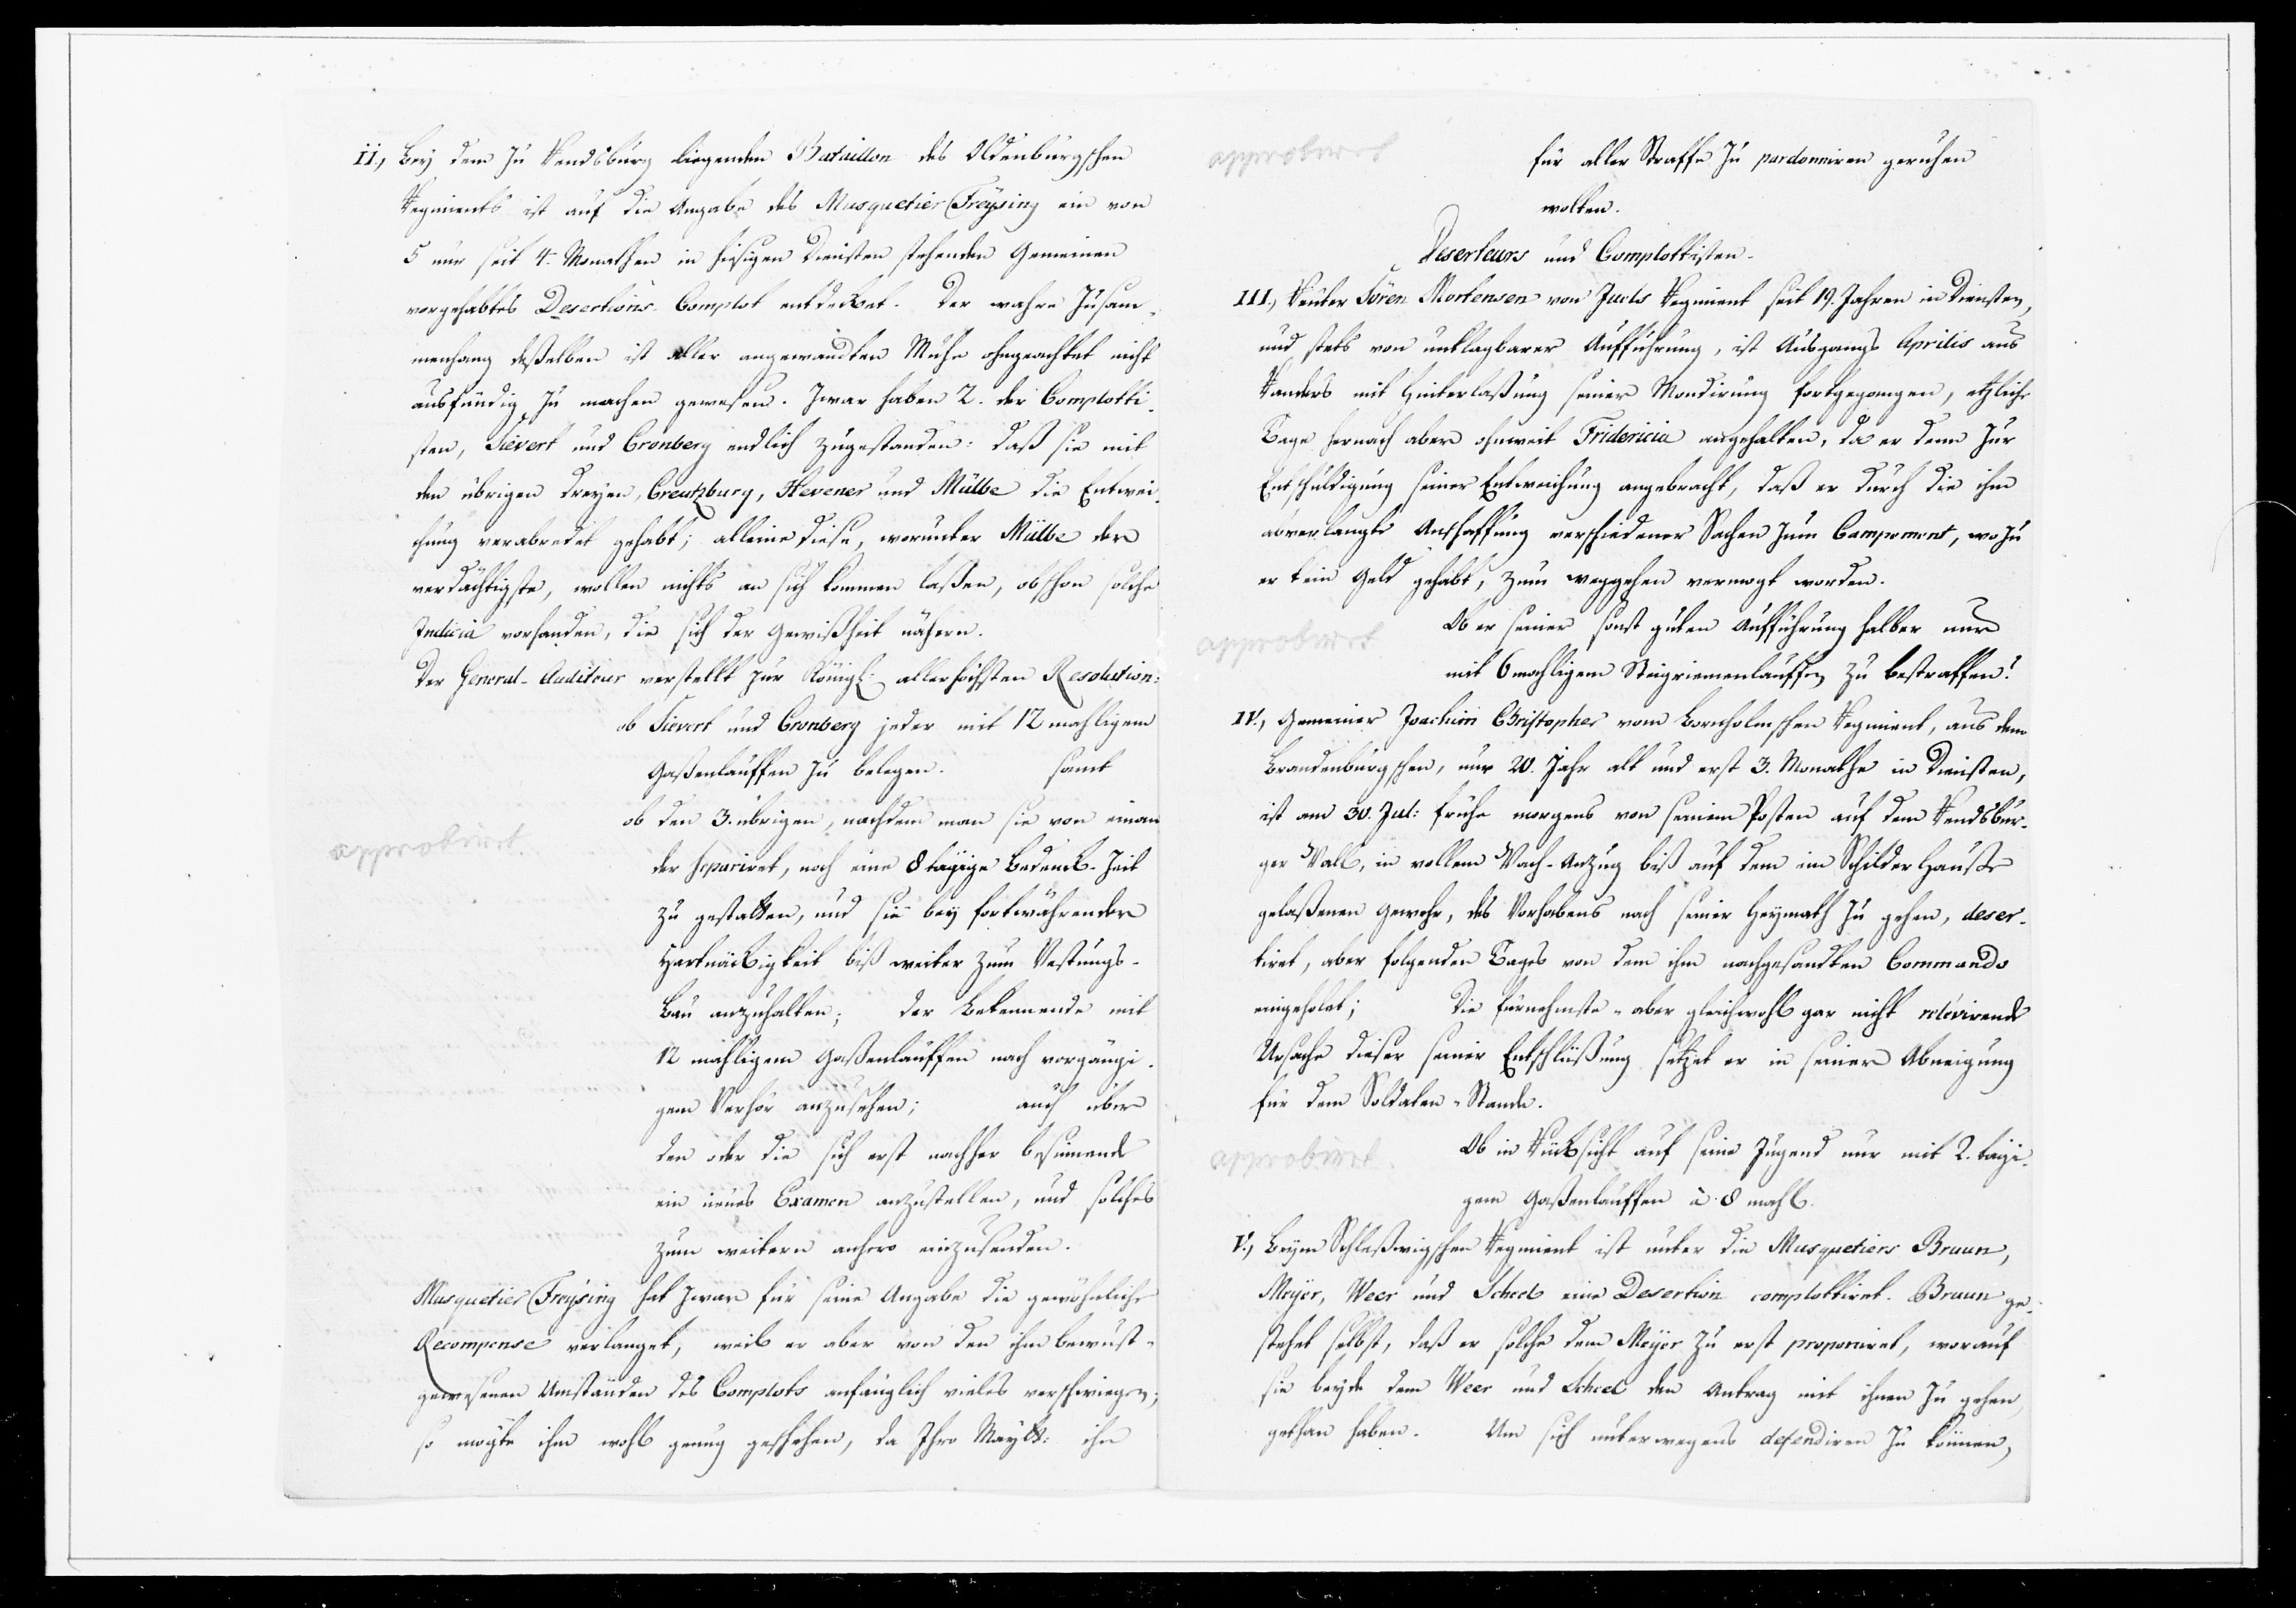 II., Bey dem zu Rendsburg liegenden Bataillon des Oldenburgschen
Regiments ist auf die Angabe des Musquetier Freysing ein von
5 nur seit 4. Monathen in hiesigen Diensten stehenden Gemeinen
vorgehabtes Desertions-Complot entdecket. Der wahre Zusam-
menhang deßelben ist aller angewandten Mühe ohngeachtet nicht
ausfündig zu machen gewesen. Zwar haben 2. der Complotti-
sten, Sievert und Cronberg endlich zugestanden: daß sie mit
den übrigen dreyen, Creutzburg, Hevener und Mülbe die Entwei-
chung verabredet gehabt; alleine diese, worunter Mülbe der
verdächtigste, wollen nichts an sich kommen laßen, obschon solche
Indicia vorhanden, die sich der Gewißheit nähern.
Der General-Auditeur verstellt zur Königl: allerhöchsten Resolution:
ob Sievert und Cronberg jeder mit 12 mahligem
Gaßenlauffen zu belegen. samt
ob den 3. übrigen, nachdem man sie von einan
der separiret, noch eine 8 tägige Bedenck-Zeit
approbiret.
zu gestatten, und sie bey fortwährender
Hartnäckigkeit biß weiter zum Vestungs-
Bau anzuhalten; der Bekennende mit
12 mahligem Gaßenlauffen nach vorgängi-
gem Verhör anzusehen; auch über
den oder die sich erst nachher besinnende
ein neues Examen anzustellen, und solches
zum weitern anhero einzusenden.
Musquetier Freysing hat zwar für seine Angabe die gewöhnliche
Recompense verlanget, weil er aber von den ihm bewust-
gewesenen Umständen des Complots anfänglich vieles verschwiegen;
so mögte ihm wohl genug geschehen, da Ihro Maytt: ihn
approbiret
für aller Straffe zu pardonniren geruhen
wolten.
Deserteurs und Complottisten.
III., Reuter Sören Mortensen von Juels Regiment seit 19. Jahren in Diensten,
und stets von unklagbarer Aufführung, ist Ausgangs Aprilis aus
Randers mit Hinterlaßung seiner Mondirung fortgegangen, etzliche
Tage hernach aber ohnweit Fridericia angehalten, da er denn zur
Entschuldigung seiner Entweichung angebracht, daß er durch die ihm
abverlangte Anschaffung verschiedener Sachen zum Campement, wozu
er kein Geld gehabt, zum weggehen vermogt worden.
approbiret
Ob er seiner sonst guten Aufführung halber nur
mit 6 mahligem Steigriemenlauffen zu bestraffen!
IV., Gemeiner Joachim Christopher vom Bornholmschen Regiment, aus dem
Brandenburgschen, nur 20. Jahr alt und erst 3. Monathe in Diensten,
ist am 30. Jul: frühe morgens von seinem Posten auf dem Rendsbur-
ger Wall, in vollem Wach-Anzug biß auf dem im Schilder Hauße
gelaßenen Gewehr, des Vorhabens nach seiner Heymath zu gehen, deser-
tiret, aber folgenden Tages von dem ihm nachgesandten Commando
eingeholet; Die fürnehmste - aber gleichwohl gar nicht relevirende
Ursache dieser seiner Entschlüßung setzet er in seiner Abneigung
für dem Soldaten-Stande.
approbiret.
Ob in Rücksicht auf seine Jugend nur mit 2. tägi-
gem Gaßenlauffen à 8 mahl.
V., Beym Schleßwigschen Regiment ist unter die Musquetiers Bruun,
Meyer, Weer und Scheel eine Desertion complottiret. Bruun ge-
stehet selbst, daß er solche dem Meyer zu erst proponiret, worauf
sie beyde dem Weer und Scheel den Antrag mit ihnen zu gehen,
gethan haben. Um sich unterwegens defendiren zu können,